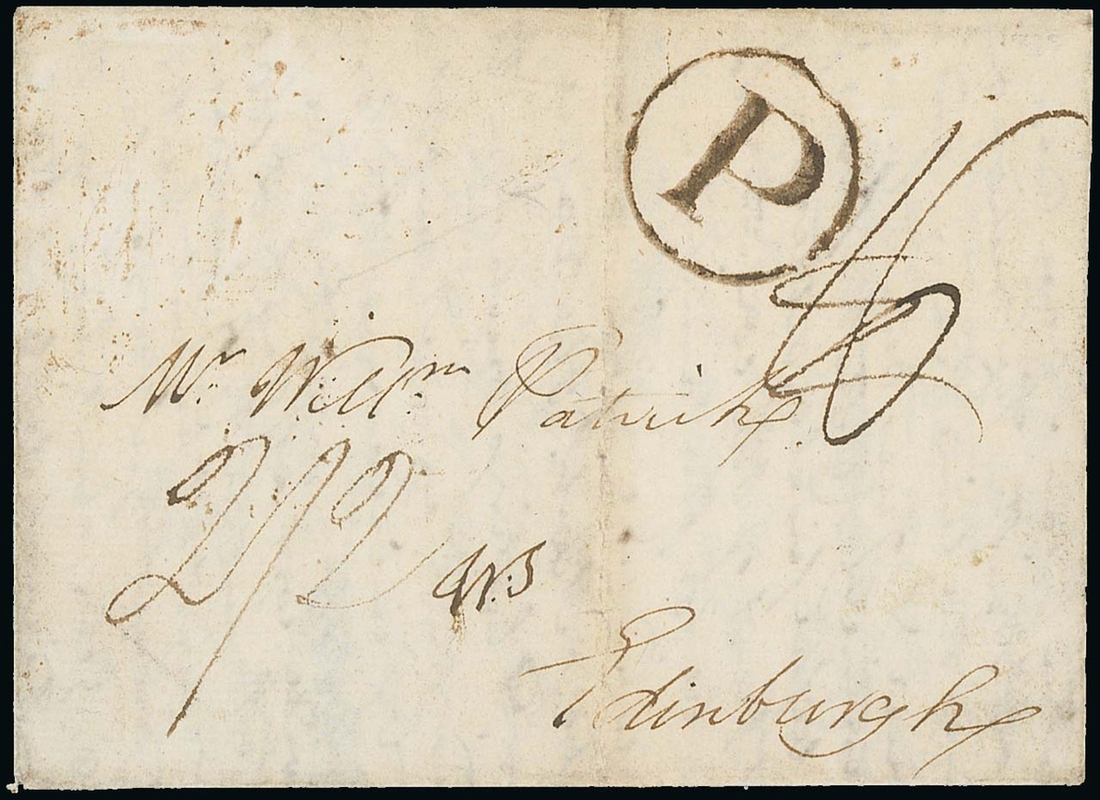 P
Mr. Willm Patrick
2/2
WS
Edinburgh